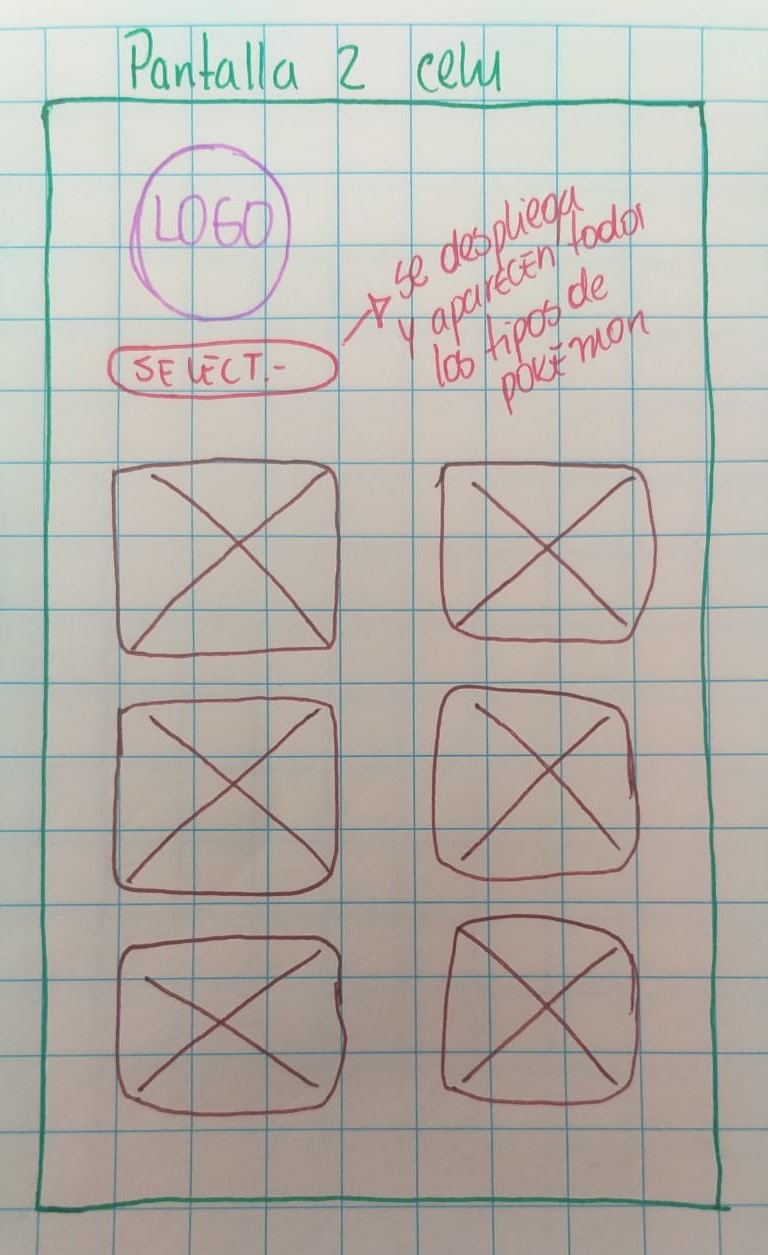 Pantalla 2 celu
LOGO
SELECT.-
se despliega
y aparECEN todos
los tipos de
pokémon